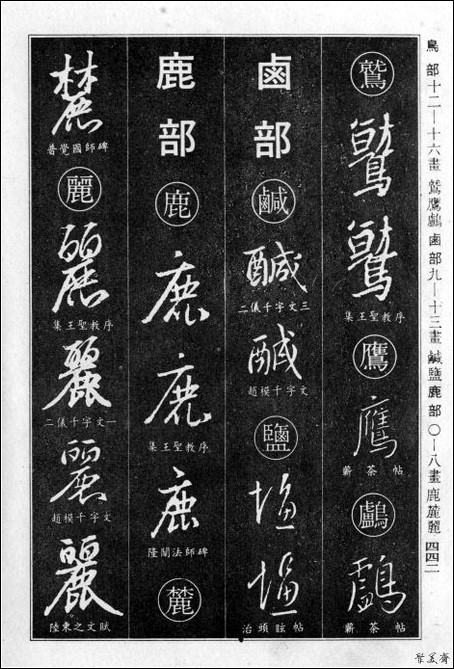 鳥部十二—十六畫 鷲鷹鸕 鹵部九—十三畫 鹹鹽 鹿部〇—八畫 鹿麓麗 四四二
鷲
鷲
鷲
集王聖教序
鷹
鷹
蘄茶帖
鸕
鸕
蘄茶帖
鹵部
鹹
鹹
二儀千字文三
鹹
趙模千字文
鹽
塩
塩
治頭眩帖
鹿部
鹿
鹿
鹿
集王聖教序
鹿
隆闡法師碑
麓
麓
普覺國師碑
麗
麗
集王聖教序
麗
二儀千字文一
麗
趙模千字文
麗
陸柬之文賦